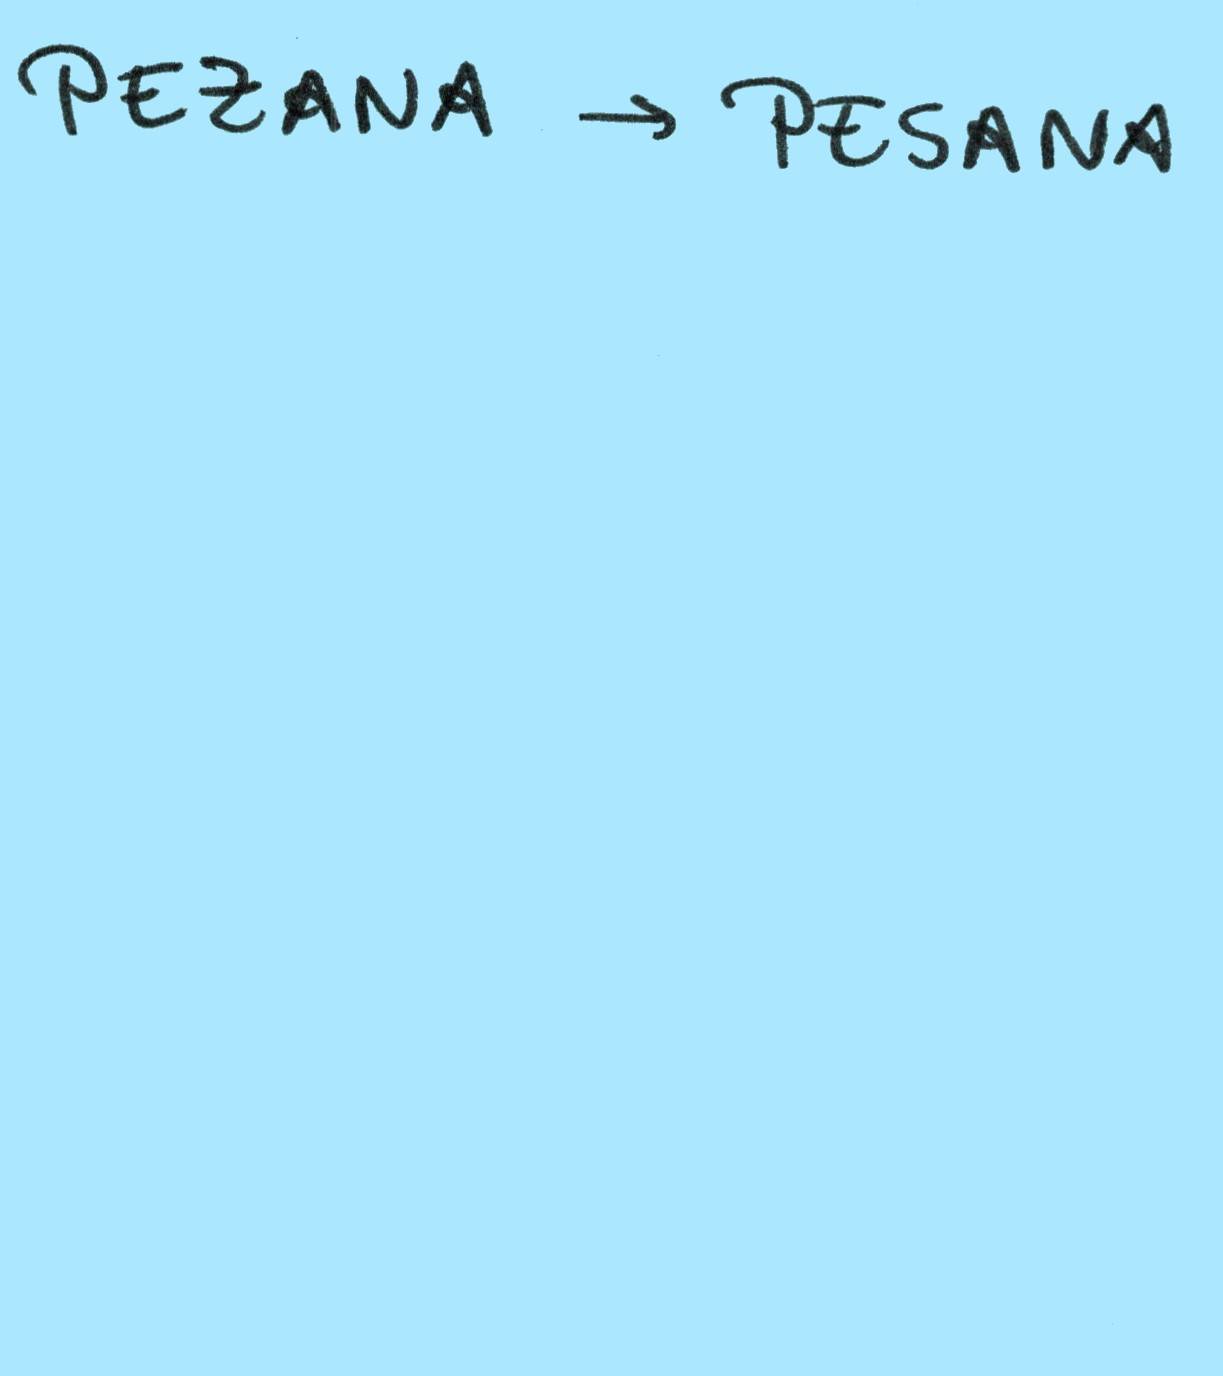 PEZANA → PESANA